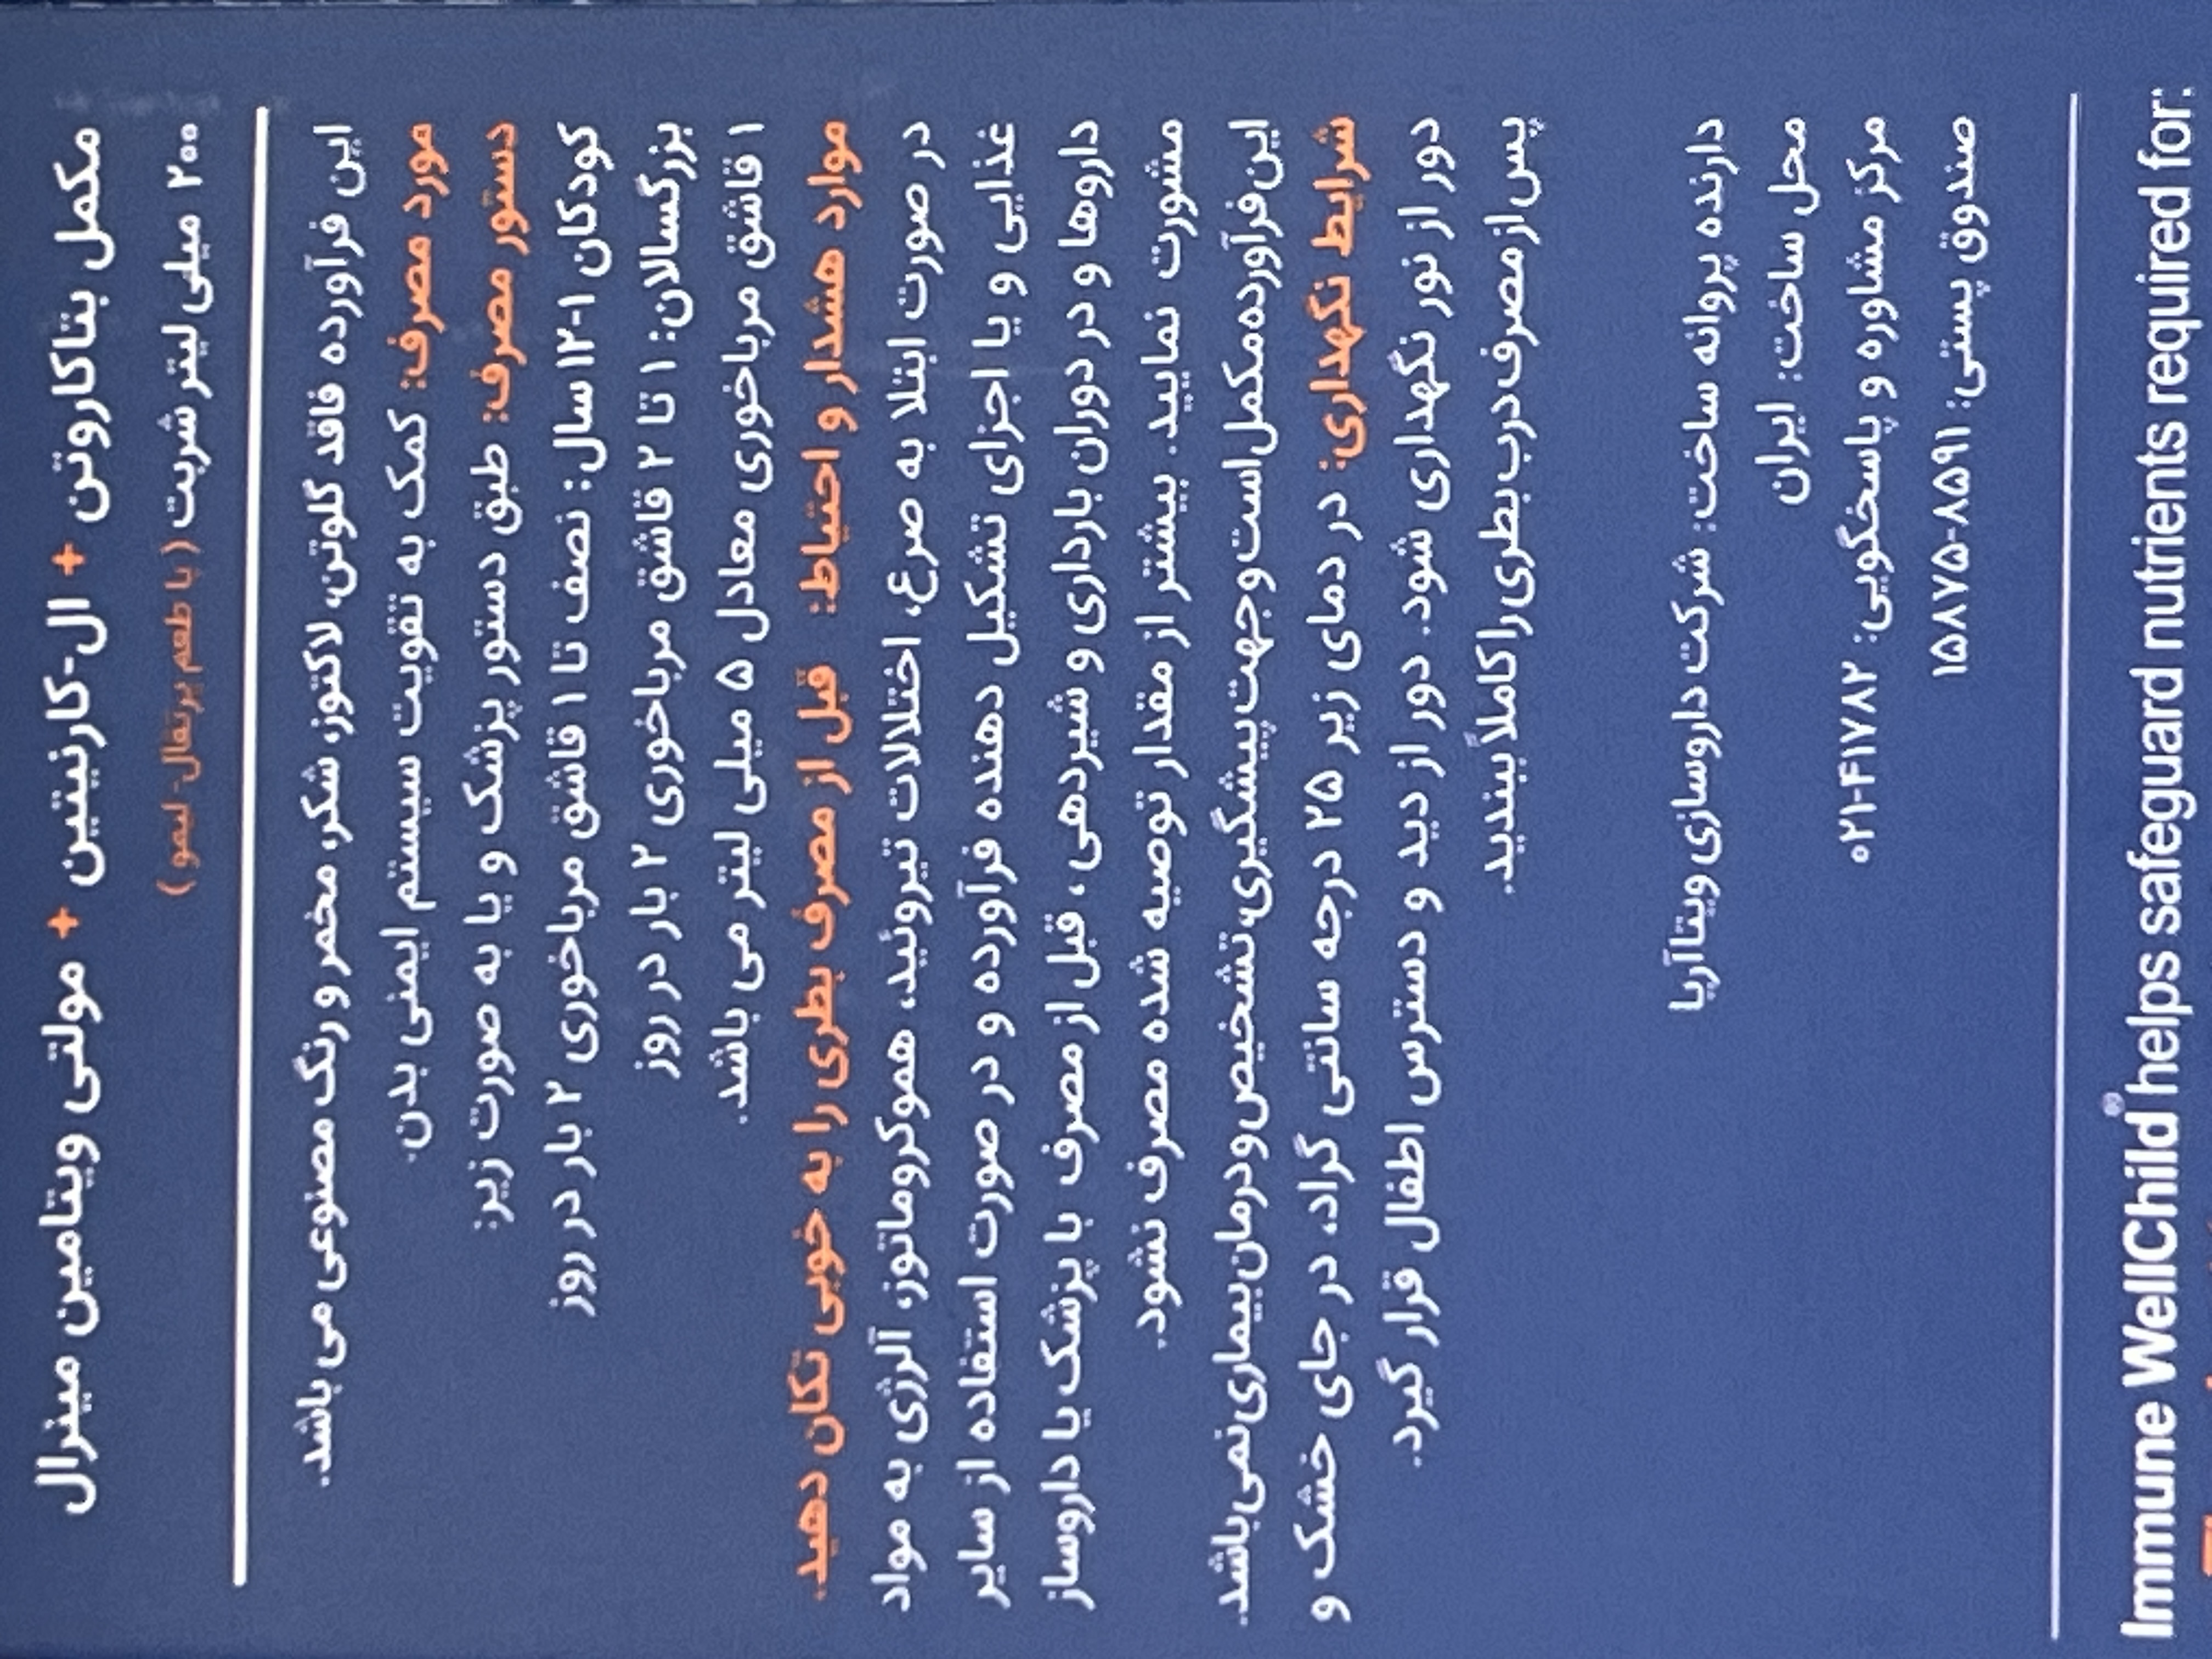 مکمل بتاکاروتن + ال-کارنیتین + مولتی ویتامین مینرال
۲۰۰ میلی لیتر شربت ( با طعم پرتقال- لیمو )
این فرآورده فاقد گلوتن، لاکتوز، شکر، مخمر و رنگ مصنوعی می باشد.
مورد مصرف: کمک به تقویت سیستم ایمنی بدن.
دستور مصرف: طبق دستور پزشک و یا به صورت زیر:
کودکان ۱-۱۲ سال: نصف تا ۱ قاشق مرباخوری ۲ بار در روز
بزرگسالان: ۱ تا ۲ قاشق مرباخوری ۲ بار در روز
۱ قاشق مرباخوری معادل ۵ میلی لیتر می باشد.
موارد هشدار و احتیاط: قبل از مصرف بطری را به خوبی تکان دهید.
در صورت ابتلا به صرع، اختلالات تیروئید، هموکروماتوز، آلرژی به مواد
غذایی و یا اجزای تشکیل دهنده فرآورده و در صورت استفاده از سایر
داروها و در دوران بارداری و شیردهی، قبل از مصرف با پزشک یا داروساز
مشورت نمایید. بیشتر از مقدار توصیه شده مصرف نشود.
این فرآورده مکمل است و جهت پیشگیری، تشخیص و درمان بیماری نمی باشد.
شرایط نگهداری: در دمای زیر ۲۵ درجه سانتی گراد، در جای خشک و
دور از نور نگهداری شود. دور از دید و دسترس اطفال قرار گیرد.
پس از مصرف درب بطری را کاملاً ببندید.
دارنده پروانه ساخت: شرکت داروسازی ویتاآریا
محل ساخت: ایران
مرکز مشاوره و پاسخگویی: ۰۲۱-۴۱۷۸۲
صندوق پستی: ۱۵۸۷۵-۸۵۹۱
Immune WellChild® helps safeguard nutrients required for: